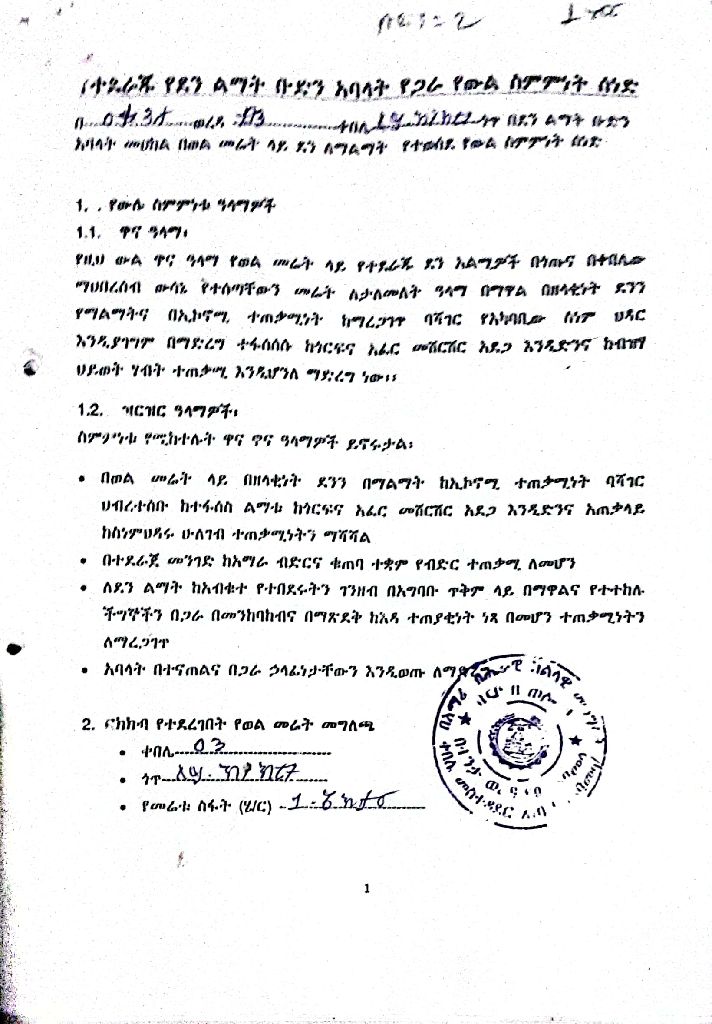 የተደራጁ የደን ልማት ቡድን አባላት የጋራ የውል ስምምነት ሰነድ
በ ወረዳ 03 ቀበሌ ጎጥ በደን ልማት ቡድን
አባላት መሀከል በወል መሬት ላይ ደን ለማልማት የተወሰደ የውል ስምምነት ሰነድ
1. . የውሉ ስምምነቱ ዓላማዎች
1.1. ዋና ዓላማ፡
የዚህ ውል ዋና ዓላማ የወል መሬት ላይ የተደራጁ ደን አልሚዎች በጎጡና በቀበሌው
ማህበረሰብ ውሳኔ የተሰጣቸውን መሬት ለታለመለት ዓላማ በማዋል በዘላቂነት ደንን
የማልማትና በኢኮኖሚ ተጠቃሚነት ከማረጋገጥ ባሻገር የአካባቢው ስነም ህዳር
እንዲያገግም በማድረግ ተፋሰሰሱ ከጎርፍና አፈር መሸርሸር አደጋ እንዲድንና ከብዝሃ
ህይወት ሃብት ተጠቃሚ እንዲሆንለ ማድረግ ነው፡፡
1.2. ዝርዝር ዓላማዎች፡
ስምምነቱ የሚከተሉት ዋና ዋና ዓላማዎች ይኖሩታል፡
• በወል መሬት ላይ በዘላቂነት ደንን በማልማት ከኢኮኖሚ ተጠቃሚነት ባሻገር
ህብረተሰቡ ከተፋሰስ ልማቱ ከጎርፍና አፈር መሸርሸር አደጋ እንዲድንና አጠቃላይ
ከስነምህዳሩ ሁለገብ ተጠቃሚነትን ማሻሻል
• በተደራጀ መንገድ ከአማራ ብድርና ቁጠባ ተቋም የብድር ተጠቃሚ ለመሆን
• ለደን ልማት ከአብቁተ የተበደሩትን ገንዘብ በአግባቡ ጥቅም ላይ በማዋልና የተተከሉ
ችግኞችን በጋራ በመንከባከብና በማጽደቅ ከእዳ ተጠያቂነት ነጻ በመሆን ተጠቃሚነትን
ለማረጋገጥ
• አባላት በተናጠልና በጋራ ኃላፊነታቸውን እንዲወጡ ለማድረግ
2. ርክክብ የተደረገበት የወል መሬት መግለጫ
• ቀበሌ 03
• ጎጥ
• የመሬቱ ስፋት (ሄ/ር) 1
1